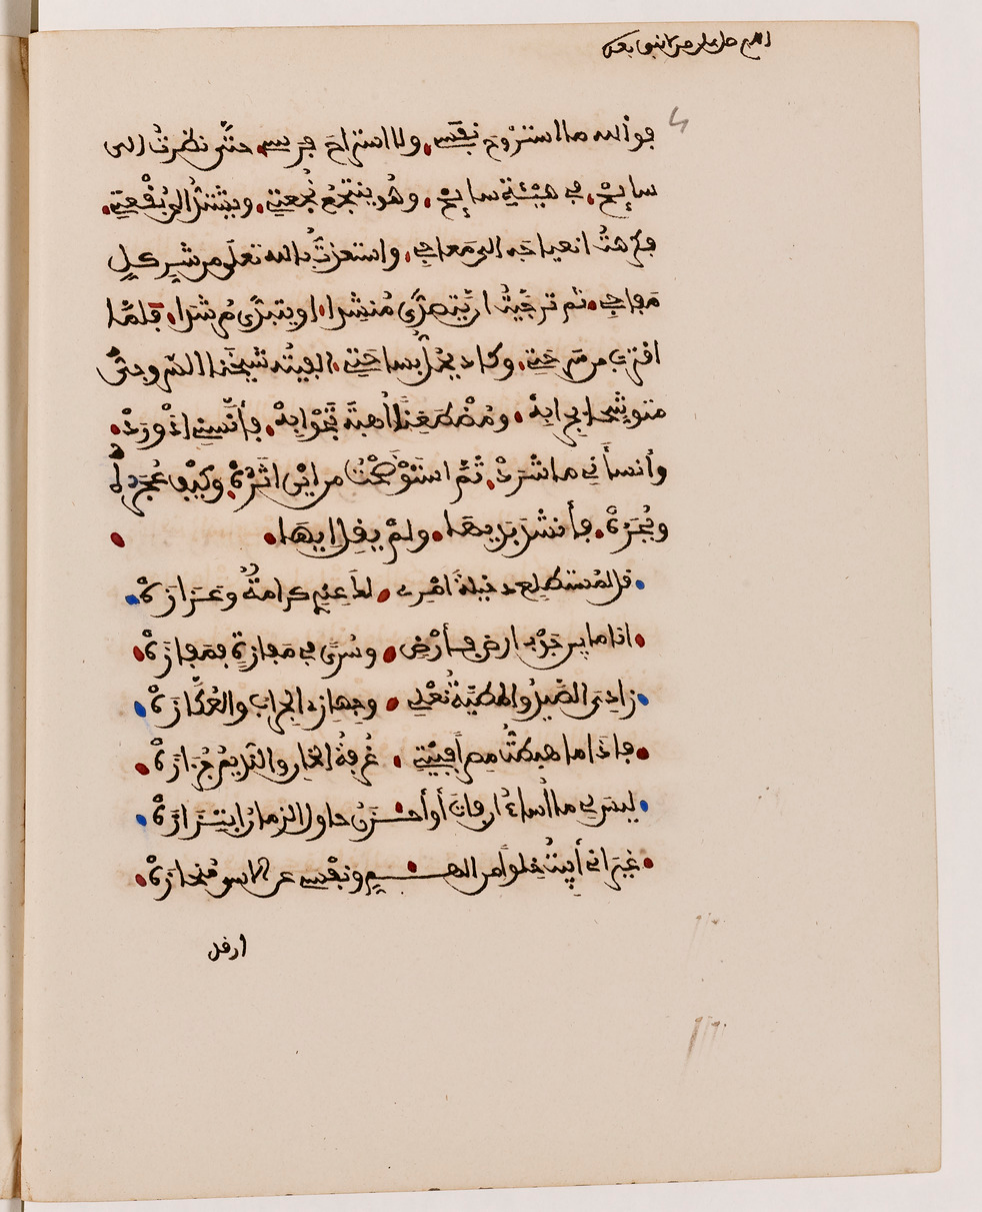 اللهم صل على من لا نبي بعده
فوالله ما استروح نفسي، ولا استراح فرسي حتى نظرت الى
سابح، في هيئة سايح، وهو ينتجع نجعتي، ويشتد الى بقعتي.
فكرهت انعياجه الى معاجي، واستعذت بالله تعلى من شر كل
مفاجي، ثم ترجيت ان يتصدى منشدا، او يتبدى مرشدا، فلما
اقترب من سرحتي، وكاد يحل بساحتي، الفيته شيخنا السروجي
متوشحا بجرابه، ومضطغنا اهبة تجوابه، فأنسني اذ ورد،
وأنساني ما شرد، ثم استوضحته من اين اثره، وكيف عجره
وبجره، فأنشد بديها، ولم يقل ايها،
قل لمستطلع دخيلة امري، لك عندي كرامة وعزازة
انا ما بين جوب ارض فأرض، وسرى في مفازة فمفازة
زادي الصيد والمطية نعلي، وجهازي الجراب والعكازة
فاذا ما هبطت مصرا فبيتي، غرفة الخان والنديم جزازة
ليس لي ما أساء ان فات أو أحزن حاول الزمان ابتزازه
غير اني أبيت خلوا من الهم ونفسي عن الاسى منحازة
ارقد